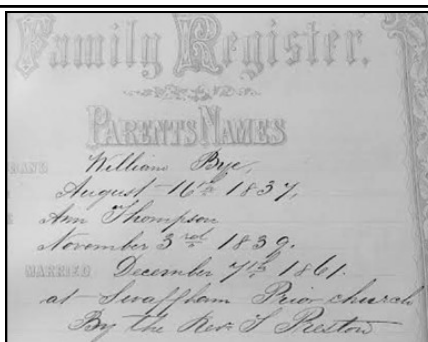 Family Register.
PARENTS NAMES
BAND William Bye,
August 16th 1837,
Ann Thompson
November 3rd 1839.
MARRIED December 7th 1861.
at Swaffham Prior church
By the Rev. Preston